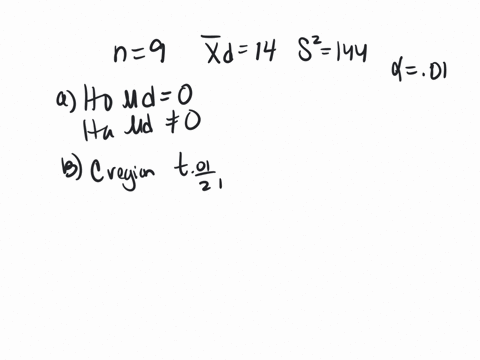 n=9 X̄d=14 S²=144 α=.01
a) Ho μd=0
Ha μd≠0
B) C region t.01/2,